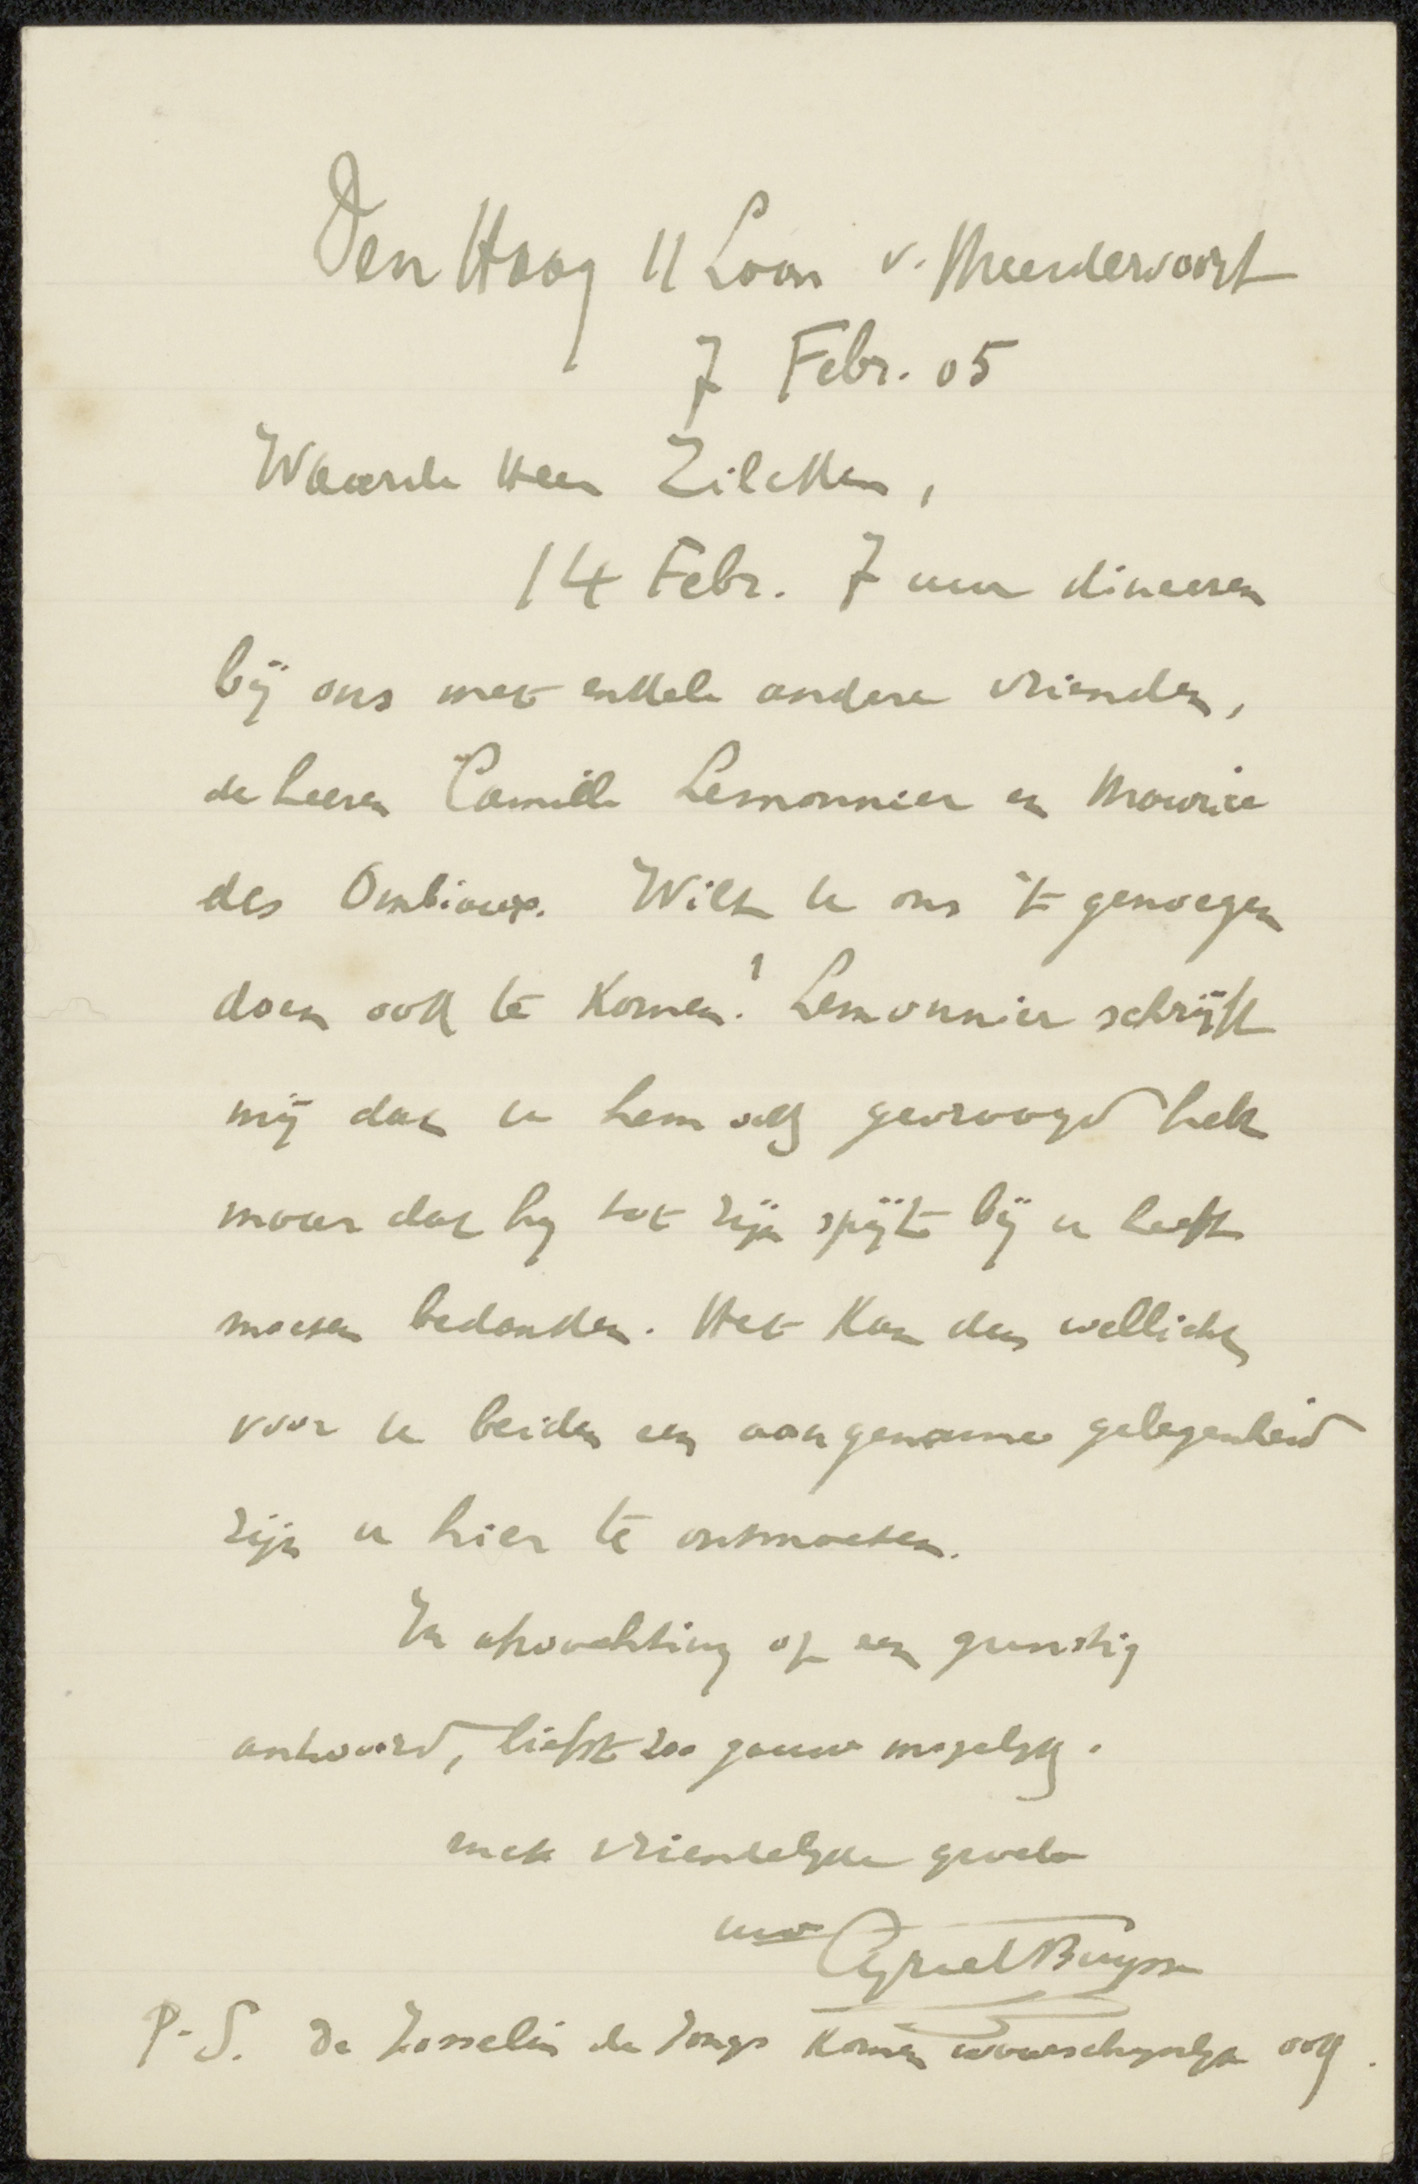 Den Haag 11 Laan v. Meerdervoort
7 Febr. 05
Waarde Heer Zilcken,
14 Febr. 7 uur dineeren
bij ons met enkele andere vrienden,
de heeren Camille Lemonnier en Maurice
des Ombiaux. Wilt u ons 't genoegen
doen ook te komen? Lemonnier schrijft
mij dat u hem ook gevraagd hebt
maar dat hij tot zijn spijt bij u heeft
moeten bedanken. Het kan dus wellicht
voor u beiden een aangename gelegenheid
zijn u hier te ontmoeten.
In afwachting op een gunstig
antwoord, liefst zoo gauw mogelijk.
met vriendelijke groeten
uw Cyriel Buysse
P.S. De Josselin de Jongs komen waarschijnlijk ook.